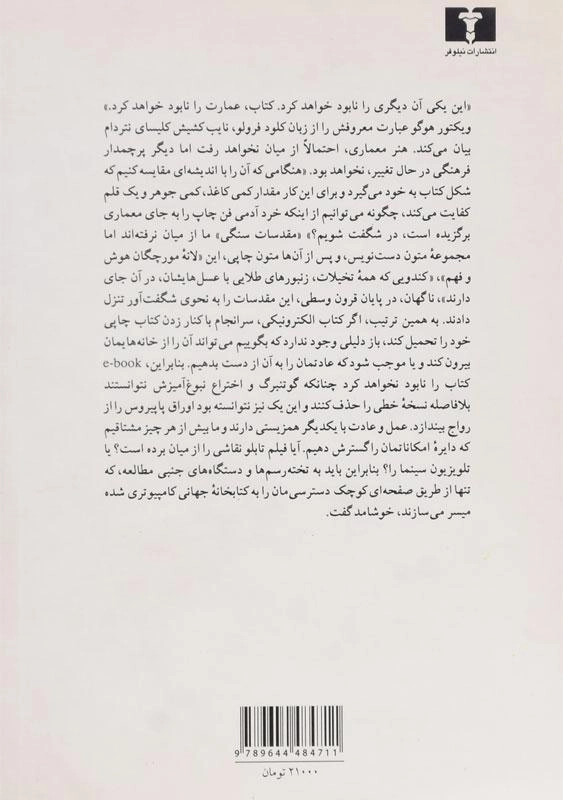 انتشارات نیلوفر
«این یکی آن دیگری را نابود خواهد کرد. کتاب، عمارت را نابود خواهد کرد.»
ویکتور هوگو عبارت معروفش را از زبان کلود فرولو، نایب کشیش کلیسای نتردام
بیان می‌کند. هنر معماری، احتمالاً از میان نخواهد رفت اما دیگر پرچمدار
فرهنگی در حال تغییر، نخواهد بود. «هنگامی که آن را با اندیشه‌ای مقایسه کنیم که
شکل کتاب به خود می‌گیرد و برای این کار مقدار کمی کاغذ، کمی جوهر و یک قلم
کفایت می‌کند، چگونه می‌توانیم از اینکه خرد آدمی فن چاپ را به جای معماری
برگزیده است، در شگفت شویم؟» «مقدسات سنگی» ما از میان نرفته‌اند اما
مجموعهٔ متون دست‌نویس، و پس از آن‌ها متون چاپی، این «لانهٔ مورچگان هوش
و فهم»، «کندویی که همهٔ تخیلات، زنبورهای طلایی با عسل‌هایشان، در آن جای
دارند»، ناگهان، در پایان قرون وسطی، این مقدسات را به نحوی شگفت‌آور تنزل
دادند. به همین ترتیب، اگر کتاب الکترونیکی، سرانجام با کنار زدن کتاب چاپی
خود را تحمیل کند، باز دلیلی وجود ندارد که بگوییم می‌تواند آن را از خانه‌هایمان
بیرون کند و یا موجب شود که عادتمان را به آن از دست بدهیم. بنابراین، e-book
کتاب را نابود نخواهد کرد چنانکه گوتنبرگ و اختراع نبوغ‌آمیزش نتوانستند
بلافاصله نسخهٔ خطی را حذف کنند و این یک نیز نتوانسته بود اوراق پاپیروس را از
رواج بیندازد. عمل و عادت با یکدیگر همزیستی دارند و ما بیش از هر چیز مشتاقیم
که دایرهٔ امکاناتمان را گسترش دهیم. آیا فیلم تابلو نقاشی را از میان برده است؟ یا
تلویزیون سینما را؟ بنابراین باید به تخته‌رسم‌ها و دستگاه‌های جنبی مطالعه، که
تنها از طریق صفحه‌ای کوچک دسترسی‌مان را به کتابخانهٔ جهانی کامپیوتری شده
میسر می‌سازند، خوشامد گفت.
9 789644 484711
۲۱۰۰۰ تومان